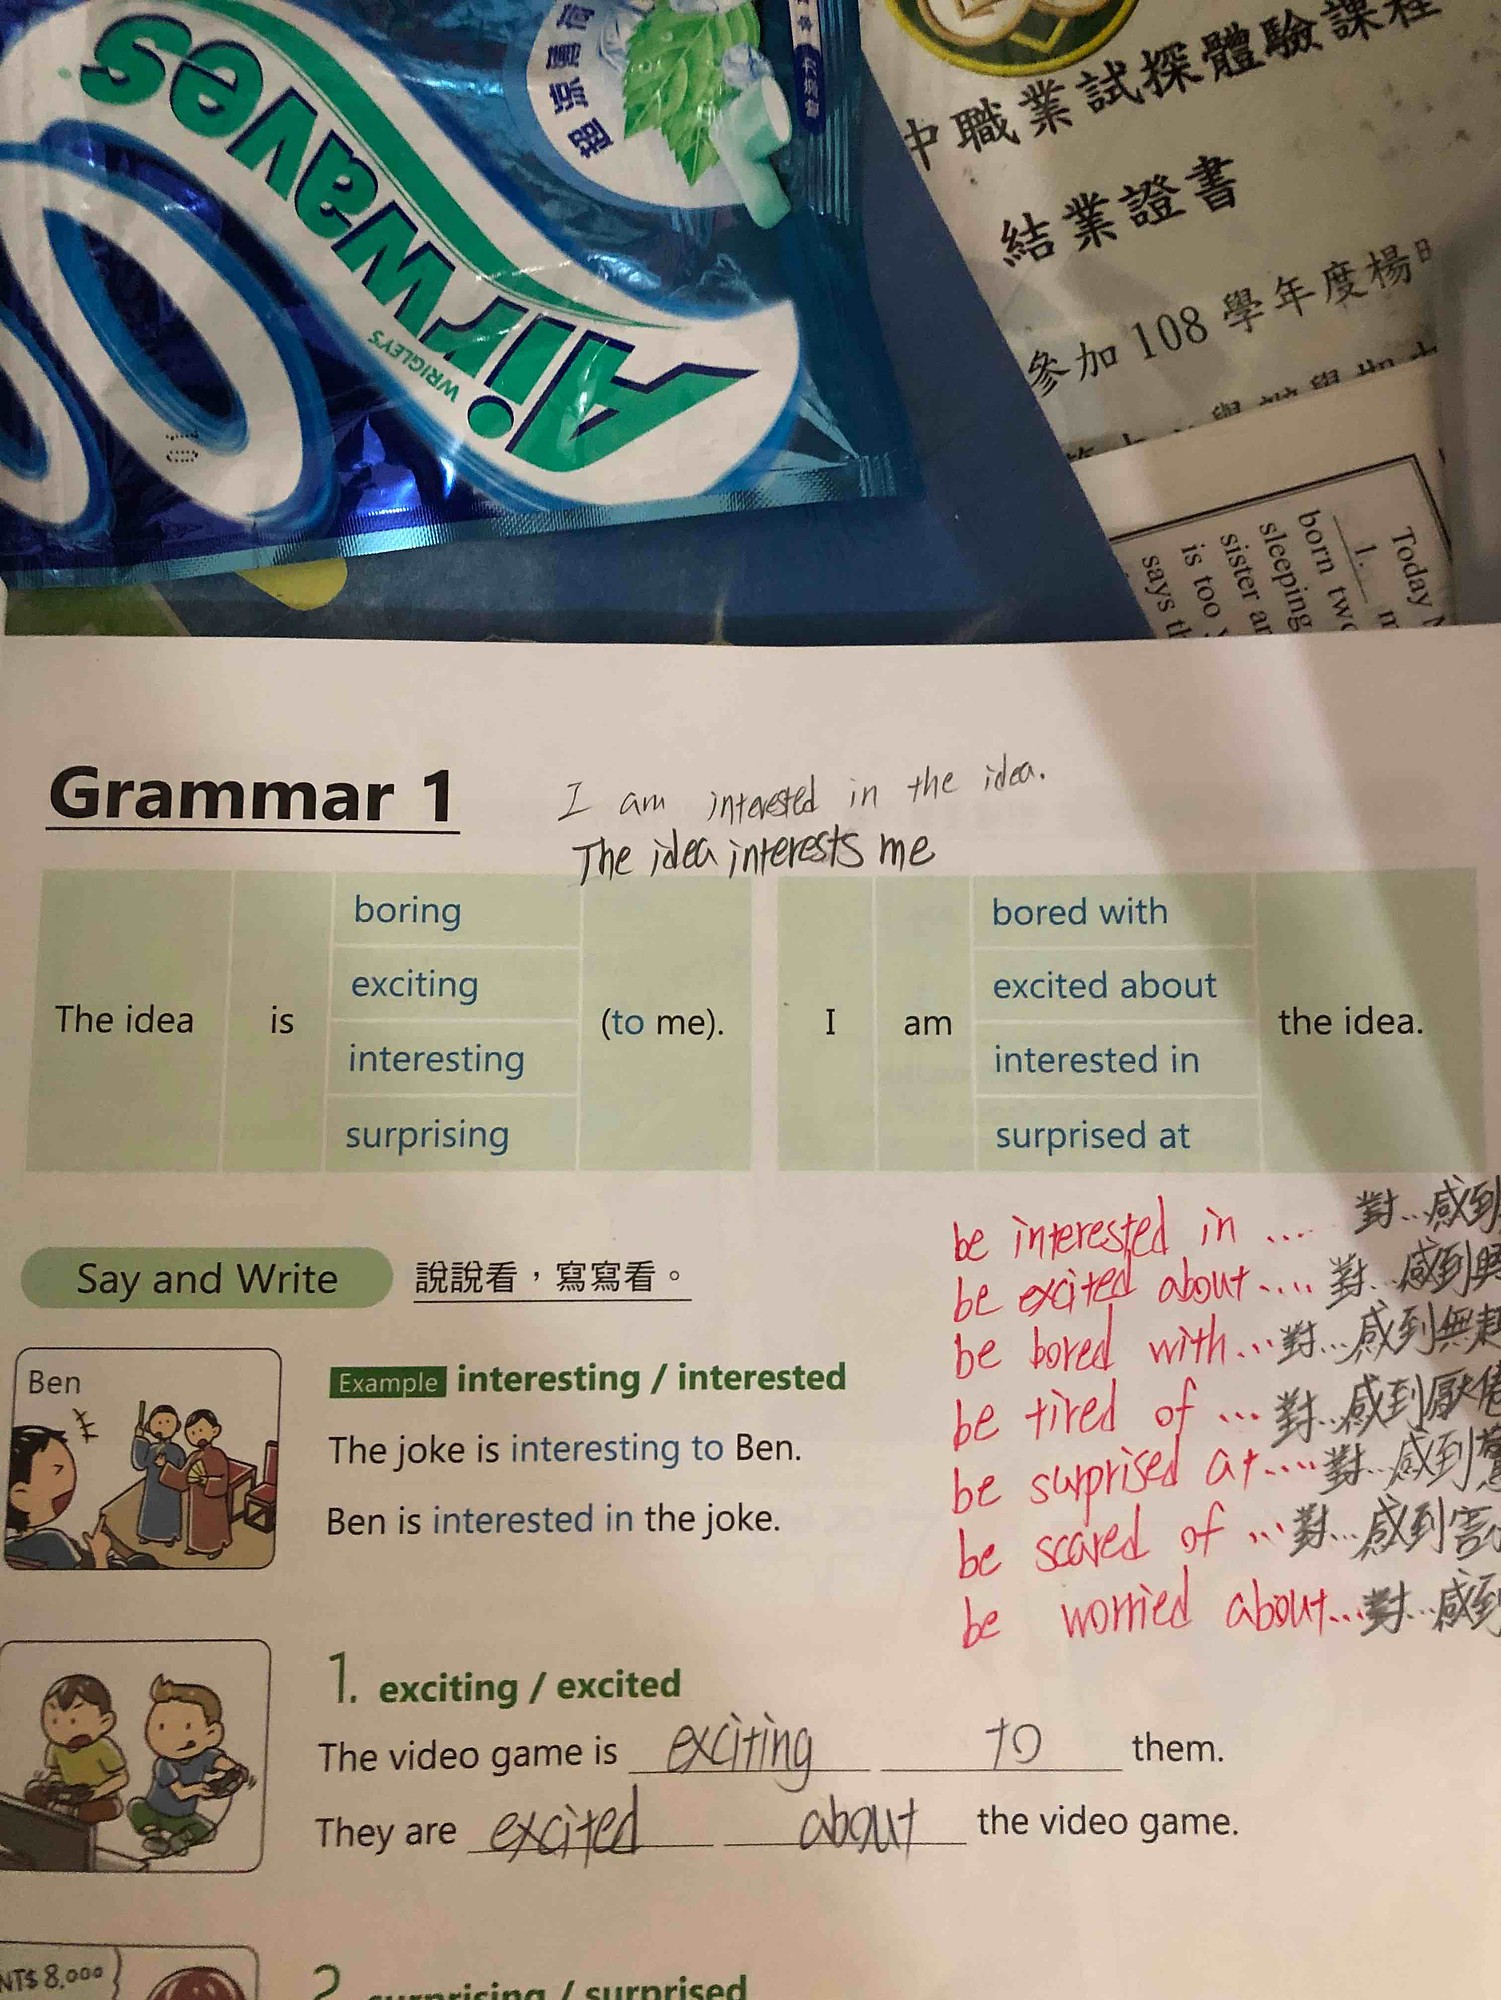 Airwaves
WRIGLEY'S
超涼薄荷
中職業試探體驗課程
結業證書
參加 108 學年度楊
Today
1.
born two
sleeping
sister
is too
says
Grammar 1
I am interested in the idea.
The idea interests me
The idea is boring exciting interesting surprising (to me).
I am bored with excited about interested in surprised at the idea.
be interested in .... 對...感到
be excited about .... 對...感到
be bored with... 對...感到無趣
be tired of ... 對...感到厭倦
be surprised at.... 對...感到驚
be scared of ... 對...感到害
be worried about... 對...感到
Say and Write 說說看，寫寫看。
Ben
Example interesting / interested
The joke is interesting to Ben.
Ben is interested in the joke.
1. exciting / excited
The video game is exciting to them.
They are excited about the video game.
NT$ 8,000
2. surprising / surprised